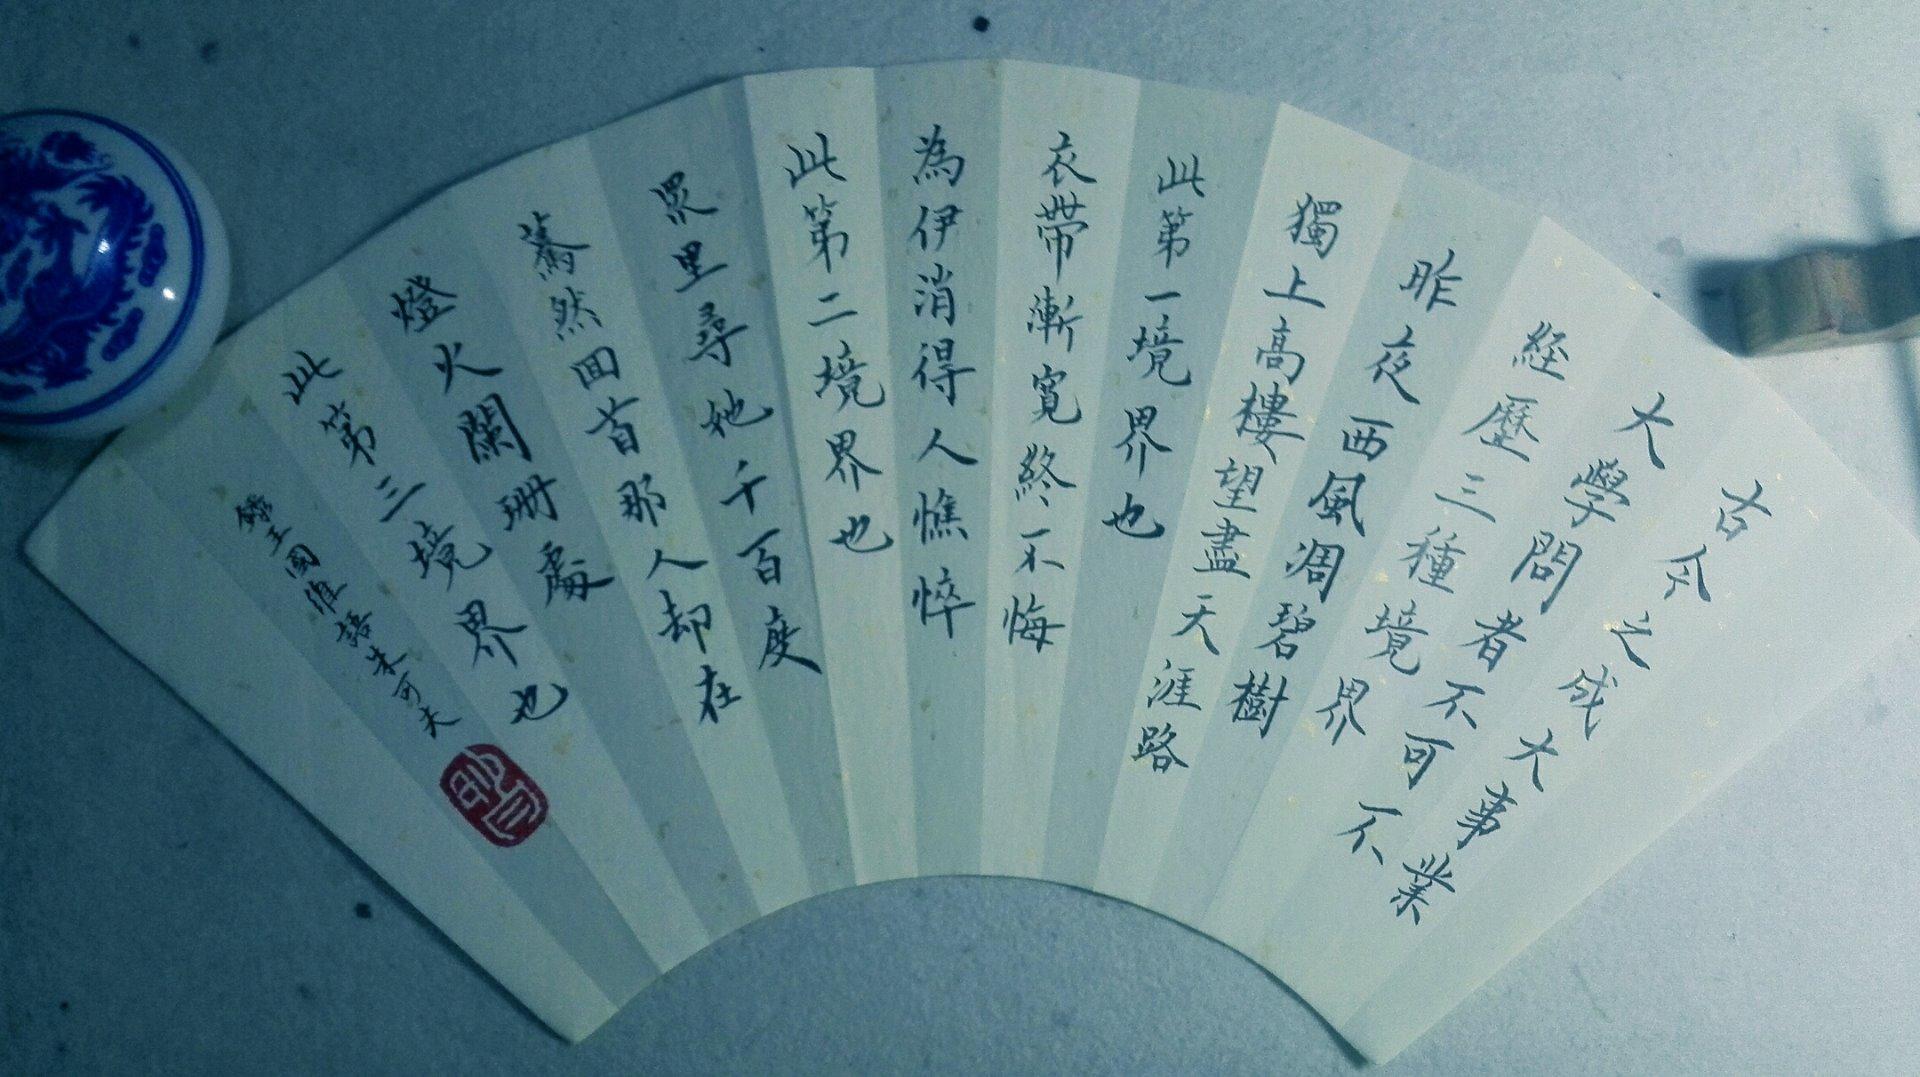 古今之成大事業
大學問者不可不
經歷三種境界
昨夜西風凋碧樹
獨上高樓望盡天涯路
此第一境界也
衣帶漸寬終不悔
為伊消得人憔悴
此第二境界也
眾里尋她千百度
驀然回首那人却在
燈火闌珊處
此第三境界也
錄王國維語朱可夫